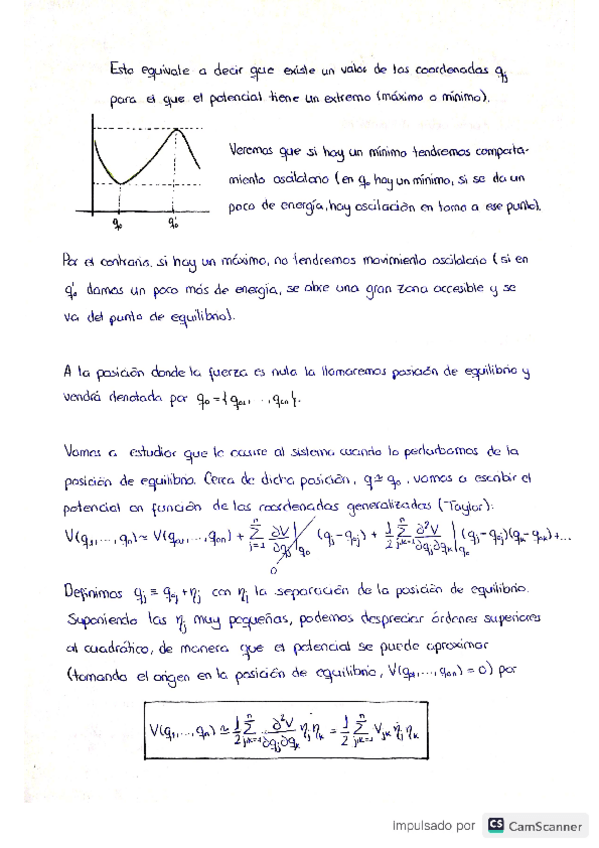 Esto equivale a decir que existe un valor de las coordenadas qj
para el que el potencial tiene un extremo (máximo o mínimo).
Veremos que si hay un mínimo tendremos comporta-
miento oscilatorio (en q₀ hay un mínimo, si se da un
poco de energía, hay oscilación en torno a ese punto).
q₀ q₀'
Por el contrario, si hay un máximo, no tendremos movimiento oscilatorio (si en
q₀' damos un poco más de energía, se abre una gran zona accesible y se
va del punto de equilibrio).
A la posición donde la fuerza es nula la llamaremos posición de equilibrio y
vendrá denotada por q₀ = {q₀₁, ..., q₀ₙ}.
Vamos a estudiar que le ocurre al sistema cuando lo perturbamos de la
posición de equilibrio. Cerca de dicha posición, q ≃ q₀, vamos a escribir el
potencial en función de las coordenadas generalizadas (~Taylor):
V(q₁,...,qₙ) ≃ V(q₀₁,...,q₀ₙ) + Σⁿⱼ₌₁ ∂V/∂qj |q₀ (qj - q₀j) + 1/2 Σⁿⱼₖ₌₁ ∂²V/∂qj∂qk |q₀ (qj - q₀j)(qk - q₀k) + ...
0
Definimos qj ≡ q₀j + ηj con ηj la separación de la posición de equilibrio.
Suponiendo las ηj muy pequeñas, podemos despreciar órdenes superiores
al cuadrático, de manera que el potencial se puede aproximar
(tomando el origen en la posición de equilibrio, V(q₀₁,...,q₀ₙ) = 0) por
V(q₁,...,qₙ) ≃ 1/2 Σⁿⱼₖ₌₁ ∂²V/∂qj∂qk ηj ηk = 1/2 Σⁿⱼₖ₌₁ Vjk ηj ηk
Impulsado por CS CamScanner